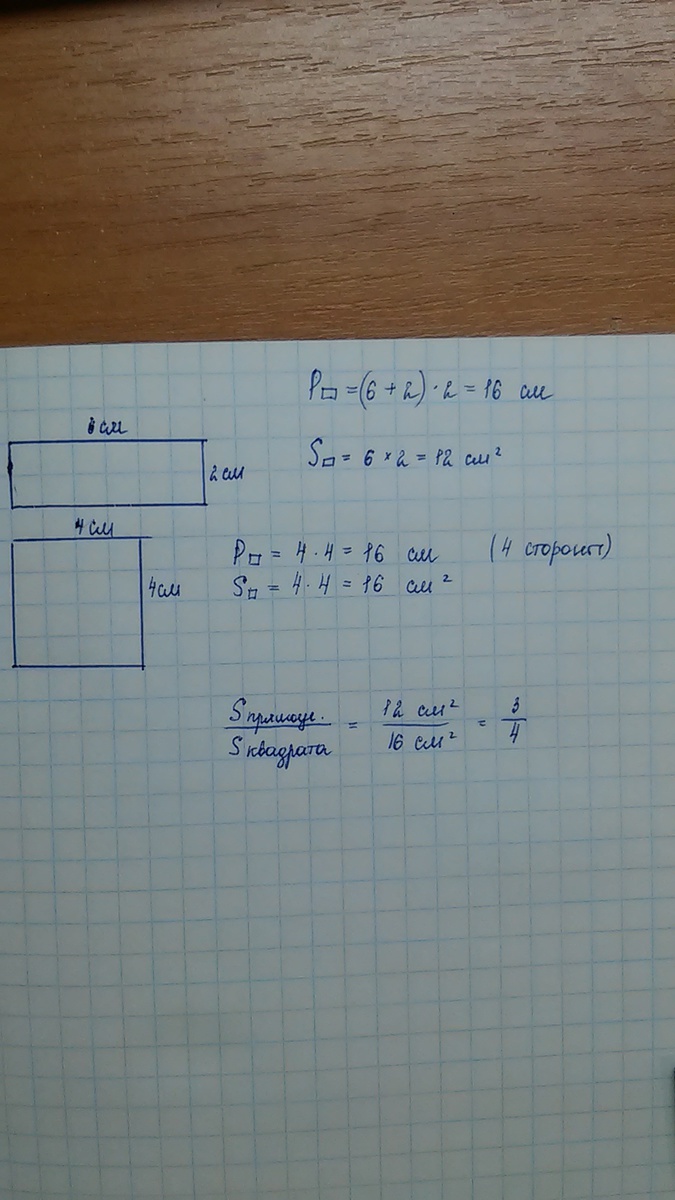 P▭ = (6 + 2) · 2 = 16 см
6 см
S▭ = 6 × 2 = 12 см²
2 см
4 см
P□ = 4 · 4 = 16 см (4 стороны)
S□ = 4 · 4 = 16 см²
4 см
S прямоуг. / S квадрата = 12 см² / 16 см² = 3/4